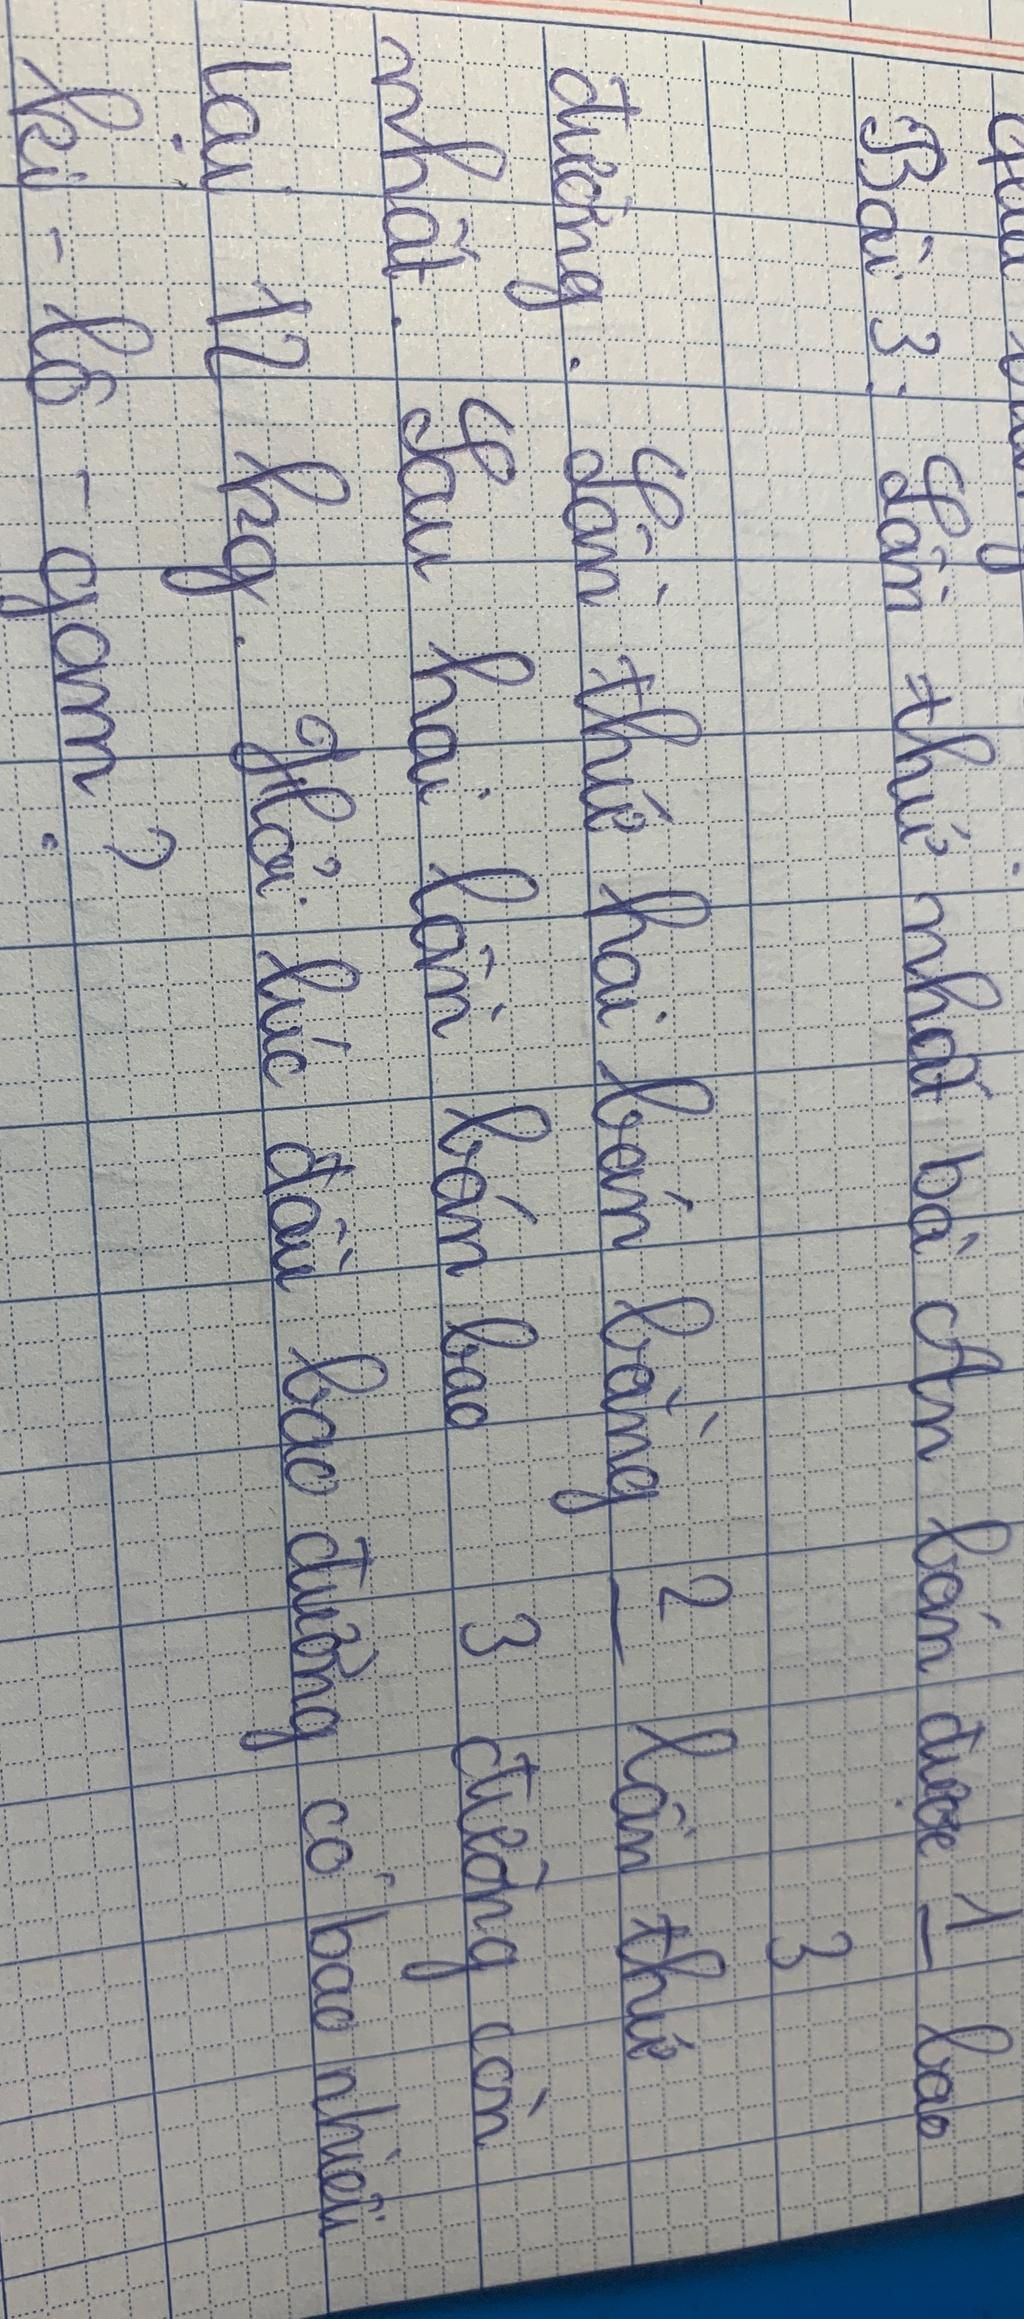 Bài 3: Lần thứ nhất bà An bán được 1 bao
3
đường. Lần thứ hai bán bằng 2 lần thứ
nhất. Sau hai lần bán bao 3 đường còn
lại 12 kg. Hỏi lúc đầu bao đường có bao nhiêu
ki-lô-gam?